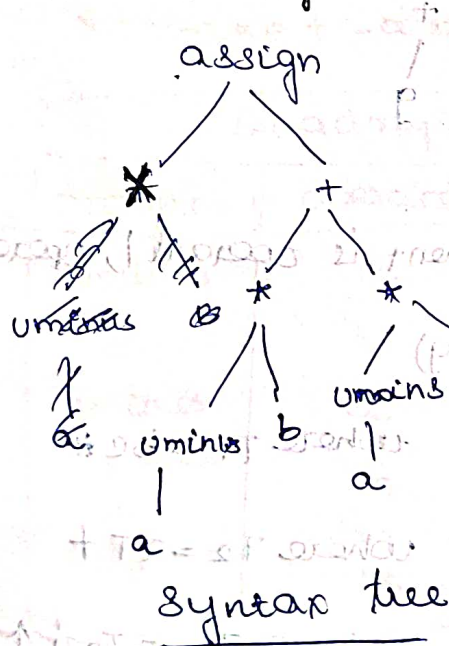 assign
* +
uminus b * *
a uminus b umains
a
a
syntax tree